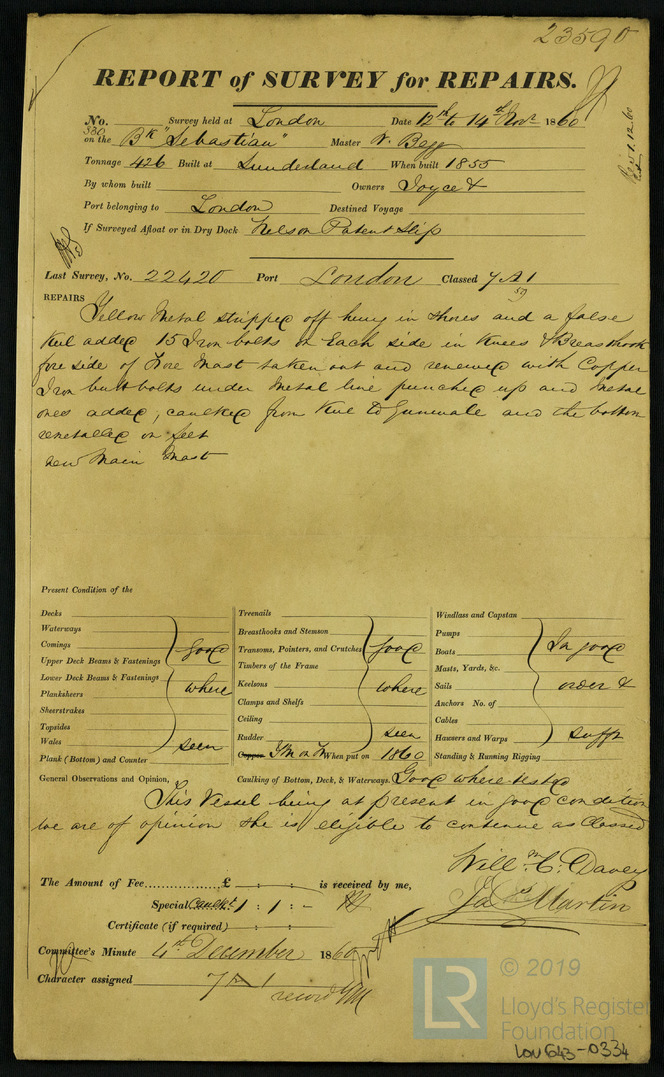 23590
REPORT of SURVEY for REPAIRS.
No. 530 Survey held at London Date 12th to 14th Novr 1860
on the Bk "Sebastian" Master W. Begg
Tonnage 426 Built at Sunderland When built 1855
By whom built Owners Joyce &
Port belonging to London Destined Voyage
If Surveyed Afloat or in Dry Dock Nelson Patent Slip
Last Survey, No. 22420 Port London Classed 7 A 1
57
REPAIRS
Yellow Metal stripped off hung in shores and a false
keel added 15 Iron bolts on Each side in Knees & Breasthook
fore side of Fore Mast taken out and renewed with Copper
Iron butt bolts under Metal line punched up and Metal
ones added, caulked from Keel to Gunwale and the bottom
remetalled on felt
new Main Mast
Present Condition of the
Decks
Waterways
Comings
Upper Deck Beams & Fastenings
Lower Deck Beams & Fastenings
Planksheers
Sheerstrakes
Topsides
Wales
Plank (Bottom) and Counter
good
where
seen
Treenails
Breasthooks and Stemson
Transoms, Pointers, and Crutches
Timbers of the Frame
Keelsons
Clamps and Shelfs
Ceiling
Rudder
good
where
seen
Copper YM on F When put on 1860
Windlass and Capstan
Pumps
Boats
Masts, Yards, &c.
Sails
Anchors No. of
Cables
Hawsers and Warps
Standing & Running Rigging
In good
order &
sufft
General Observations and Opinion, Caulking of Bottom, Deck, & Waterways. Good where tested
This Vessel being at present in good condition
we are of opinion she is eligible to continue as Classed
Willm C. Davey
Jas Martin
The Amount of Fee £ : : is received by me,
Special Caulkg 1 : 1 : -
Certificate (if required) : :
Committee's Minute 4th December 1860
Character assigned 7 A 1
record YM
LR © 2019
Lloyd's Register
Foundation
LON643-0334